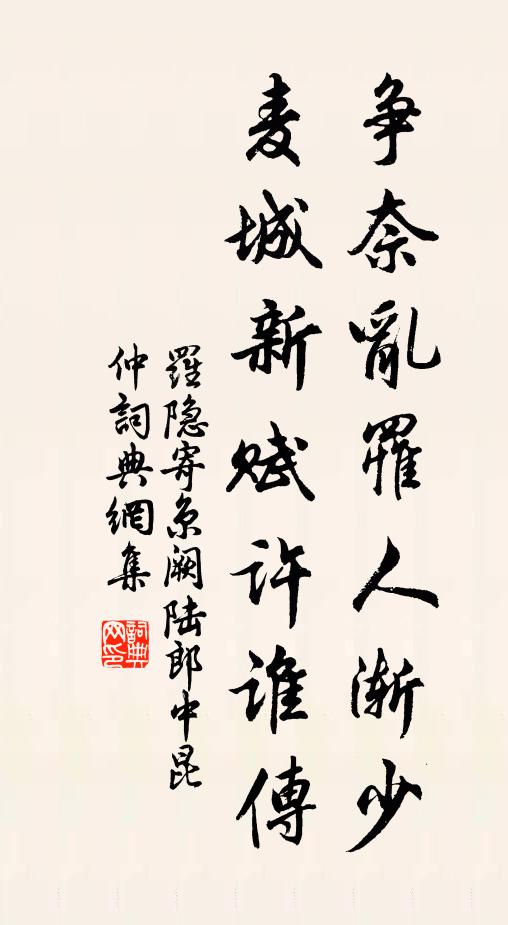 争奈亂罹人漸少
麦城新赋許誰傳
羅隐寄京阙陆郎中昆
仲詞典網集
詞典网印